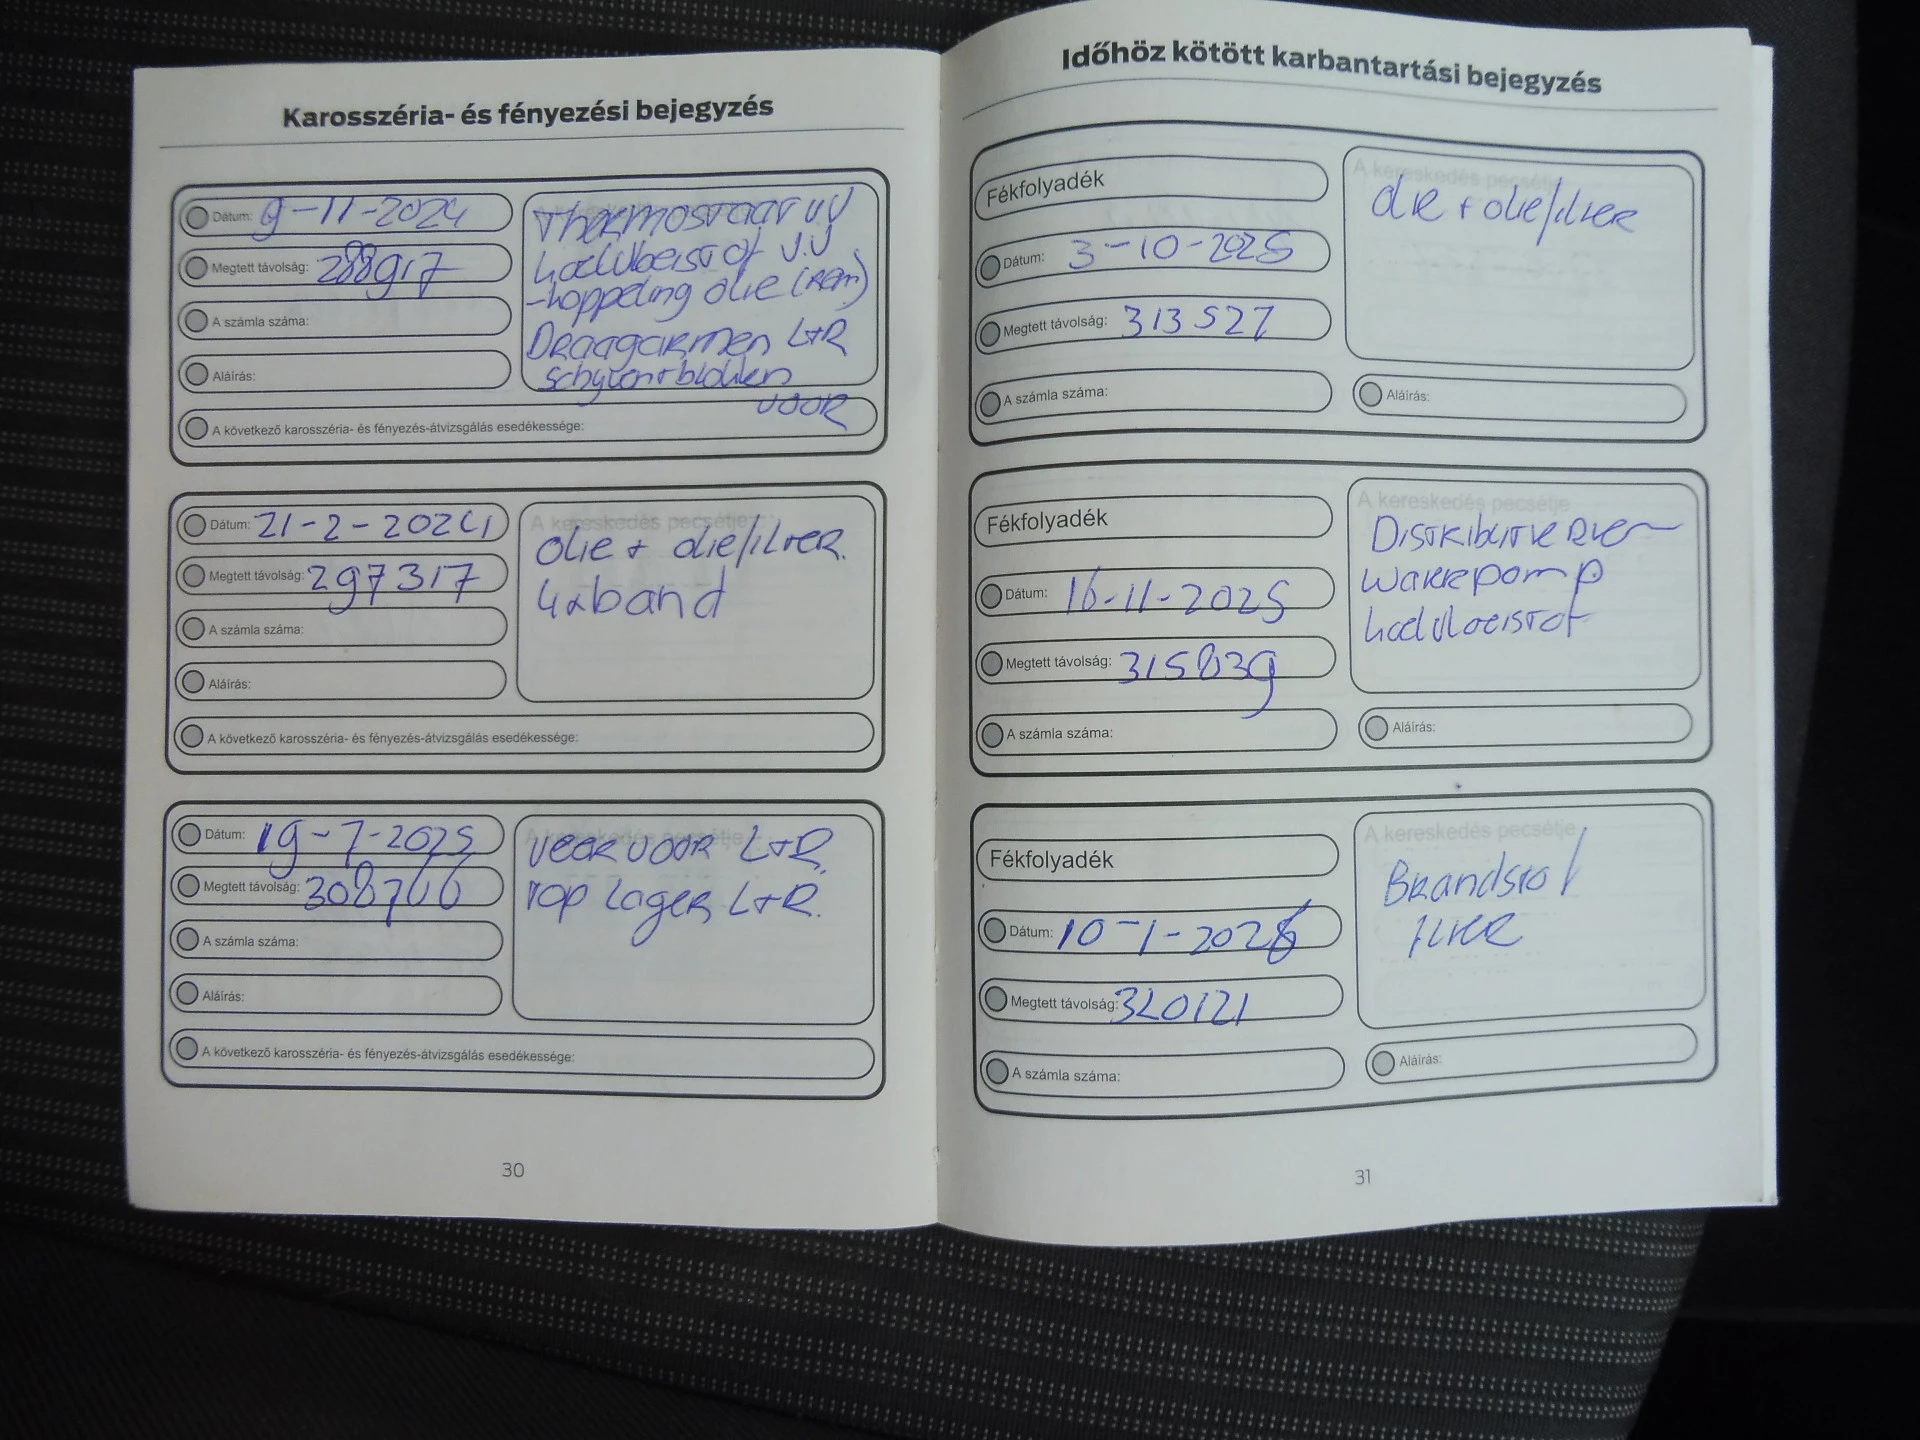 Karosszéria- és fényezési bejegyzés
Dátum: 9-11-2024
Megtett távolság: 288917
A számla száma:
Aláírás:
Thermostaat V.V
koelvloeistof V.V
-koppeling olie (rem)
Draagarmen L+R
schijven+blokken
VOOR
A következő karosszéria- és fényezés-átvizsgálás esedékessége:
Dátum: 21-2-202
Megtett távolság: 297317
A számla száma:
Aláírás:
A kereskedés pecsétje
olie + oliefilter.
4xband
A következő karosszéria- és fényezés-átvizsgálás esedékessége:
Dátum: 19-7-2025
Megtett távolság: 308766
A számla száma:
Aláírás:
A kereskedés pecsétje
veer voor L+R.
Top Lager L+R.
A következő karosszéria- és fényezés-átvizsgálás esedékessége:
30
Időhöz kötött karbantartási bejegyzés
Fékfolyadék
Dátum: 3-10-2025
Megtett távolság: 313527
A számla száma:
A kereskedés pecsétje
olie + oliefilter
Aláírás:
Fékfolyadék
Dátum: 16-11-2025
Megtett távolság: 315839
A számla száma:
A kereskedés pecsétje
Distributie
waterpomp
koelvloeistof
Aláírás:
Fékfolyadék
Dátum: 10-1-2026
Megtett távolság: 320121
A számla száma:
A kereskedés pecsétje
Brandstof
filter
Aláírás:
31